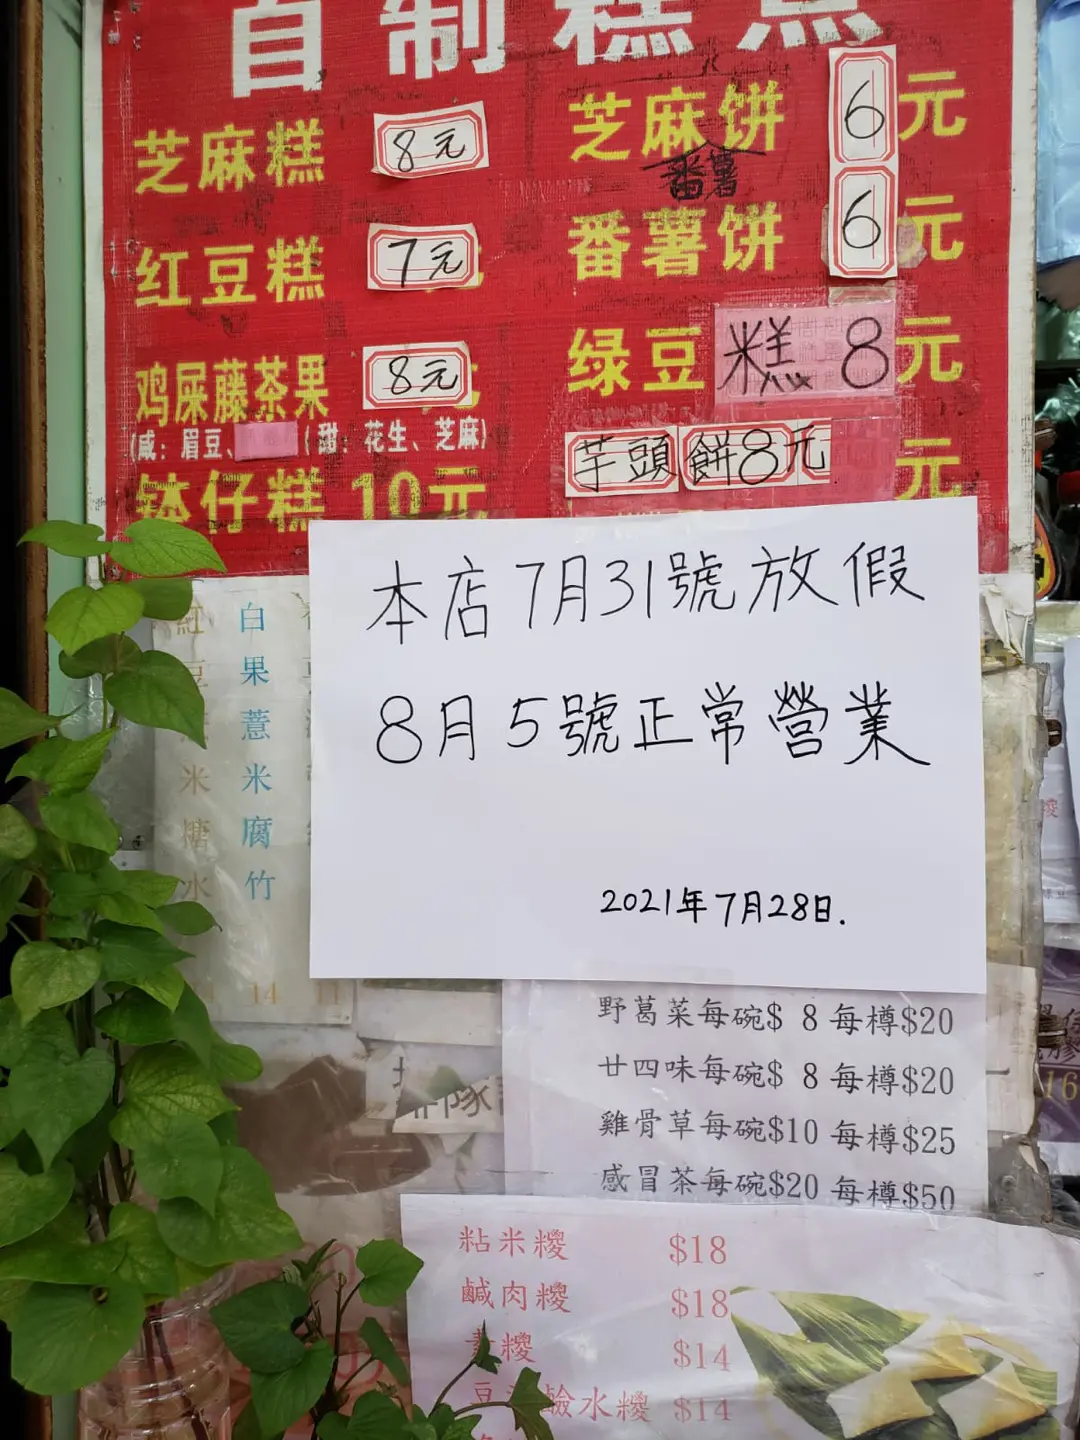 自制糕点
芝麻糕 8元
红豆糕 7元
鸡屎藤茶果 8元
(咸：眉豆、 (甜：花生、芝麻)
钵仔糕 10元
芝麻饼 6元
番薯
番薯饼 6元
绿豆糕 8元
芋頭餅8元 元
本店7月31號放假
8月5號正常營業
2021年7月28日.
紅豆 米糖水
白果薏米腐竹
14
11
野葛菜每碗$ 8 每樽$20
廿四味每碗$ 8 每樽$20
雞骨草每碗$10 每樽$25
感冒茶每碗$20 每樽$50
粘米糭 $18
鹹肉糭 $18
糭 $14
豆 鹼水糭 $14
隊
16